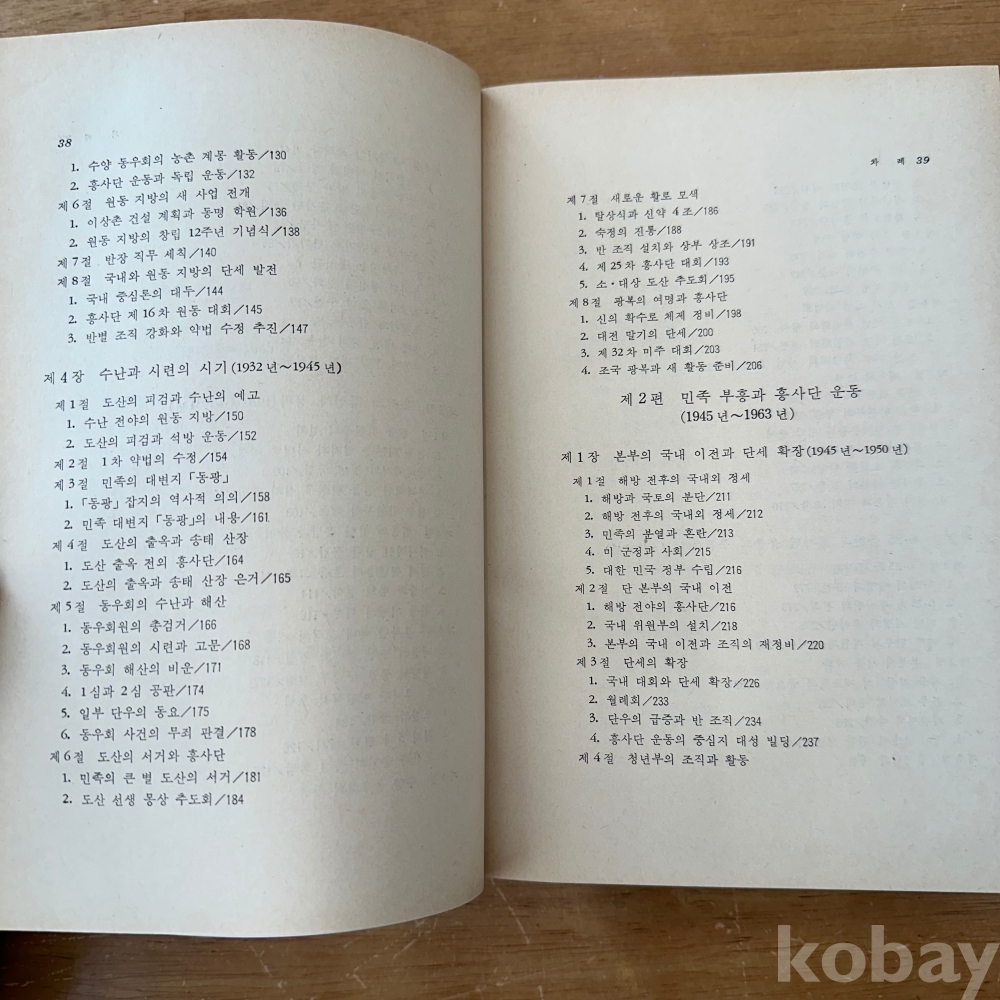 38
1. 수양 동우회의 농촌 계몽 활동/130
2. 흥사단 운동과 독립 운동/132
제 6 절 원동 지방의 새 사업 전개
1. 이상촌 건설 계획과 동명 학원/136
2. 원동 지방의 창립 12주년 기념식/138
제 7 절 반장 직무 세칙/140
제 8 절 국내와 원동 지방의 단세 발전
1. 국내 중심론의 대두/144
2. 흥사단 제 16 차 원동 대회/145
3. 반별 조직 강화와 약법 수정 추진/147
제 4 장 수난과 시련의 시기 (1932 년~1945 년)
제 1 절 도산의 피검과 수난의 예고
1. 수난 전야의 원동 지방/150
2. 도산의 피검과 석방 운동/152
제 2 절 1 차 약법의 수정/154
제 3 절 민족의 대변지 「동광」
1. 「동광」 잡지의 역사적 의의/158
2. 민족 대변지 「동광」의 내용/161
제 4 절 도산의 출옥과 송태 산장
1. 도산 출옥 전의 흥사단/164
2. 도산의 출옥과 송태 산장 은거/165
제 5 절 동우회의 수난과 해산
1. 동우회원의 총검거/166
2. 동우회원의 시련과 고문/168
3. 동우회 해산의 비운/171
4. 1 심과 2 심 공판/174
5. 일부 단우의 동요/175
6. 동우회 사건의 무죄 판결/178
제 6 절 도산의 서거와 흥사단
1. 민족의 큰 별 도산의 서거/181
2. 도산 선생 몽상 추도회/184
차 례 39
제 7 절 새로운 활로 모색
1. 탈상식과 신약 4 조/186
2. 숙정의 진통/188
3. 반 조직 설치와 상부 상조/191
4. 제 25 차 흥사단 대회/193
5. 소·대상 도산 추도회/195
제 8 절 광복의 여명과 흥사단
1. 신의 확수로 체제 정비/198
2. 대전 말기의 단세/200
3. 제 32 차 미주 대회/203
4. 조국 광복과 새 활동 준비/206
제 2 편 민족 부흥과 흥사단 운동
(1945 년~1963 년)
제 1 장 본부의 국내 이전과 단세 확장(1945 년~1950 년)
제 1 절 해방 전후의 국내외 정세
1. 해방과 국토의 분단/211
2. 해방 전후의 국내외 정세/212
3. 민족의 분열과 혼란/213
4. 미 군정과 사회/215
5. 대한 민국 정부 수립/216
제 2 절 단 본부의 국내 이전
1. 해방 전야의 흥사단/216
2. 국내 위원부의 설치/218
3. 본부의 국내 이전과 조직의 재정비/220
제 3 절 단세의 확장
1. 국내 대회와 단세 확장/226
2. 월례회/233
3. 단우의 급증과 반 조직/234
4. 흥사단 운동의 중심지 대성 빌딩/237
제 4 절 청년부의 조직과 활동
kobay